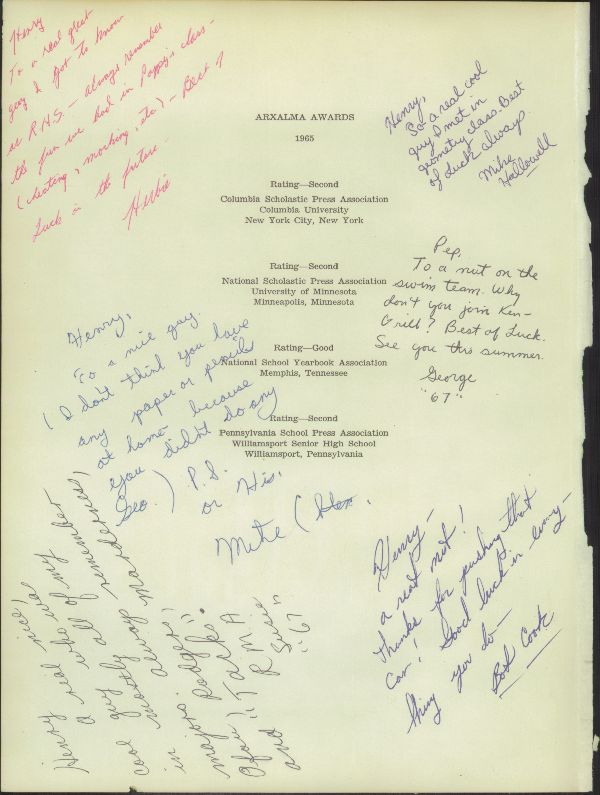 Henry
To a real great
guy I got to know
at R.H.S. — always remember
the fun we had in Pappy's class —
(cheating, mocking, etc) — Best of
Luck in the future
Herbie
Henry,
So a real cool
guy I met in
geometry class. Best
of Luck always
Mike
Hallowell
ARXALMA AWARDS
1965
Rating—Second
Columbia Scholastic Press Association
Columbia University
New York City, New York
Rating—Second
National Scholastic Press Association
University of Minnesota
Minneapolis, Minnesota
Rating—Good
National School Yearbook Association
Memphis, Tennessee
Rating—Second
Pennsylvania School Press Association
Williamsport Senior High School
Williamsport, Pennsylvania
Pep,
To a nut on the
swim team. Why
don't you join Ken-
Grill? Best of Luck.
See you this summer.
George
"67"
Henry,
To a nice guy.
(I don't think you have
any paper or pencils
at home because
you didn't do any
Geo.) P.S.
or His.
Mike
Henry
a real nice,
cool guy who was
in mostly all of my
majors. Always remember
and
Susie
"67"
Henry—
a real nut!
Thanks for pushing that
car! Good luck in every-
thing you do—
Bob Cook